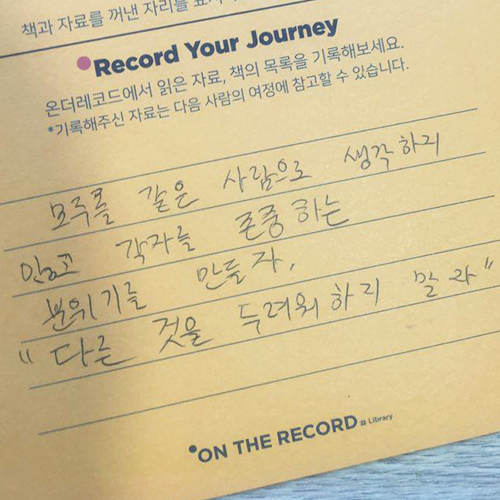 책과 자료를 꺼낸 자리를
Record Your Journey
온더레코드에서 읽은 자료, 책의 목록을 기록해보세요.
*기록해주신 자료는 다음 사람의 여정에 참고할 수 있습니다.
모두를 같은 사람으로 생각하지
않고 각자를 존중하는
분위기를 만들자.
"다른 것을 두려워하지 말라"
ON THE RECORD # Library